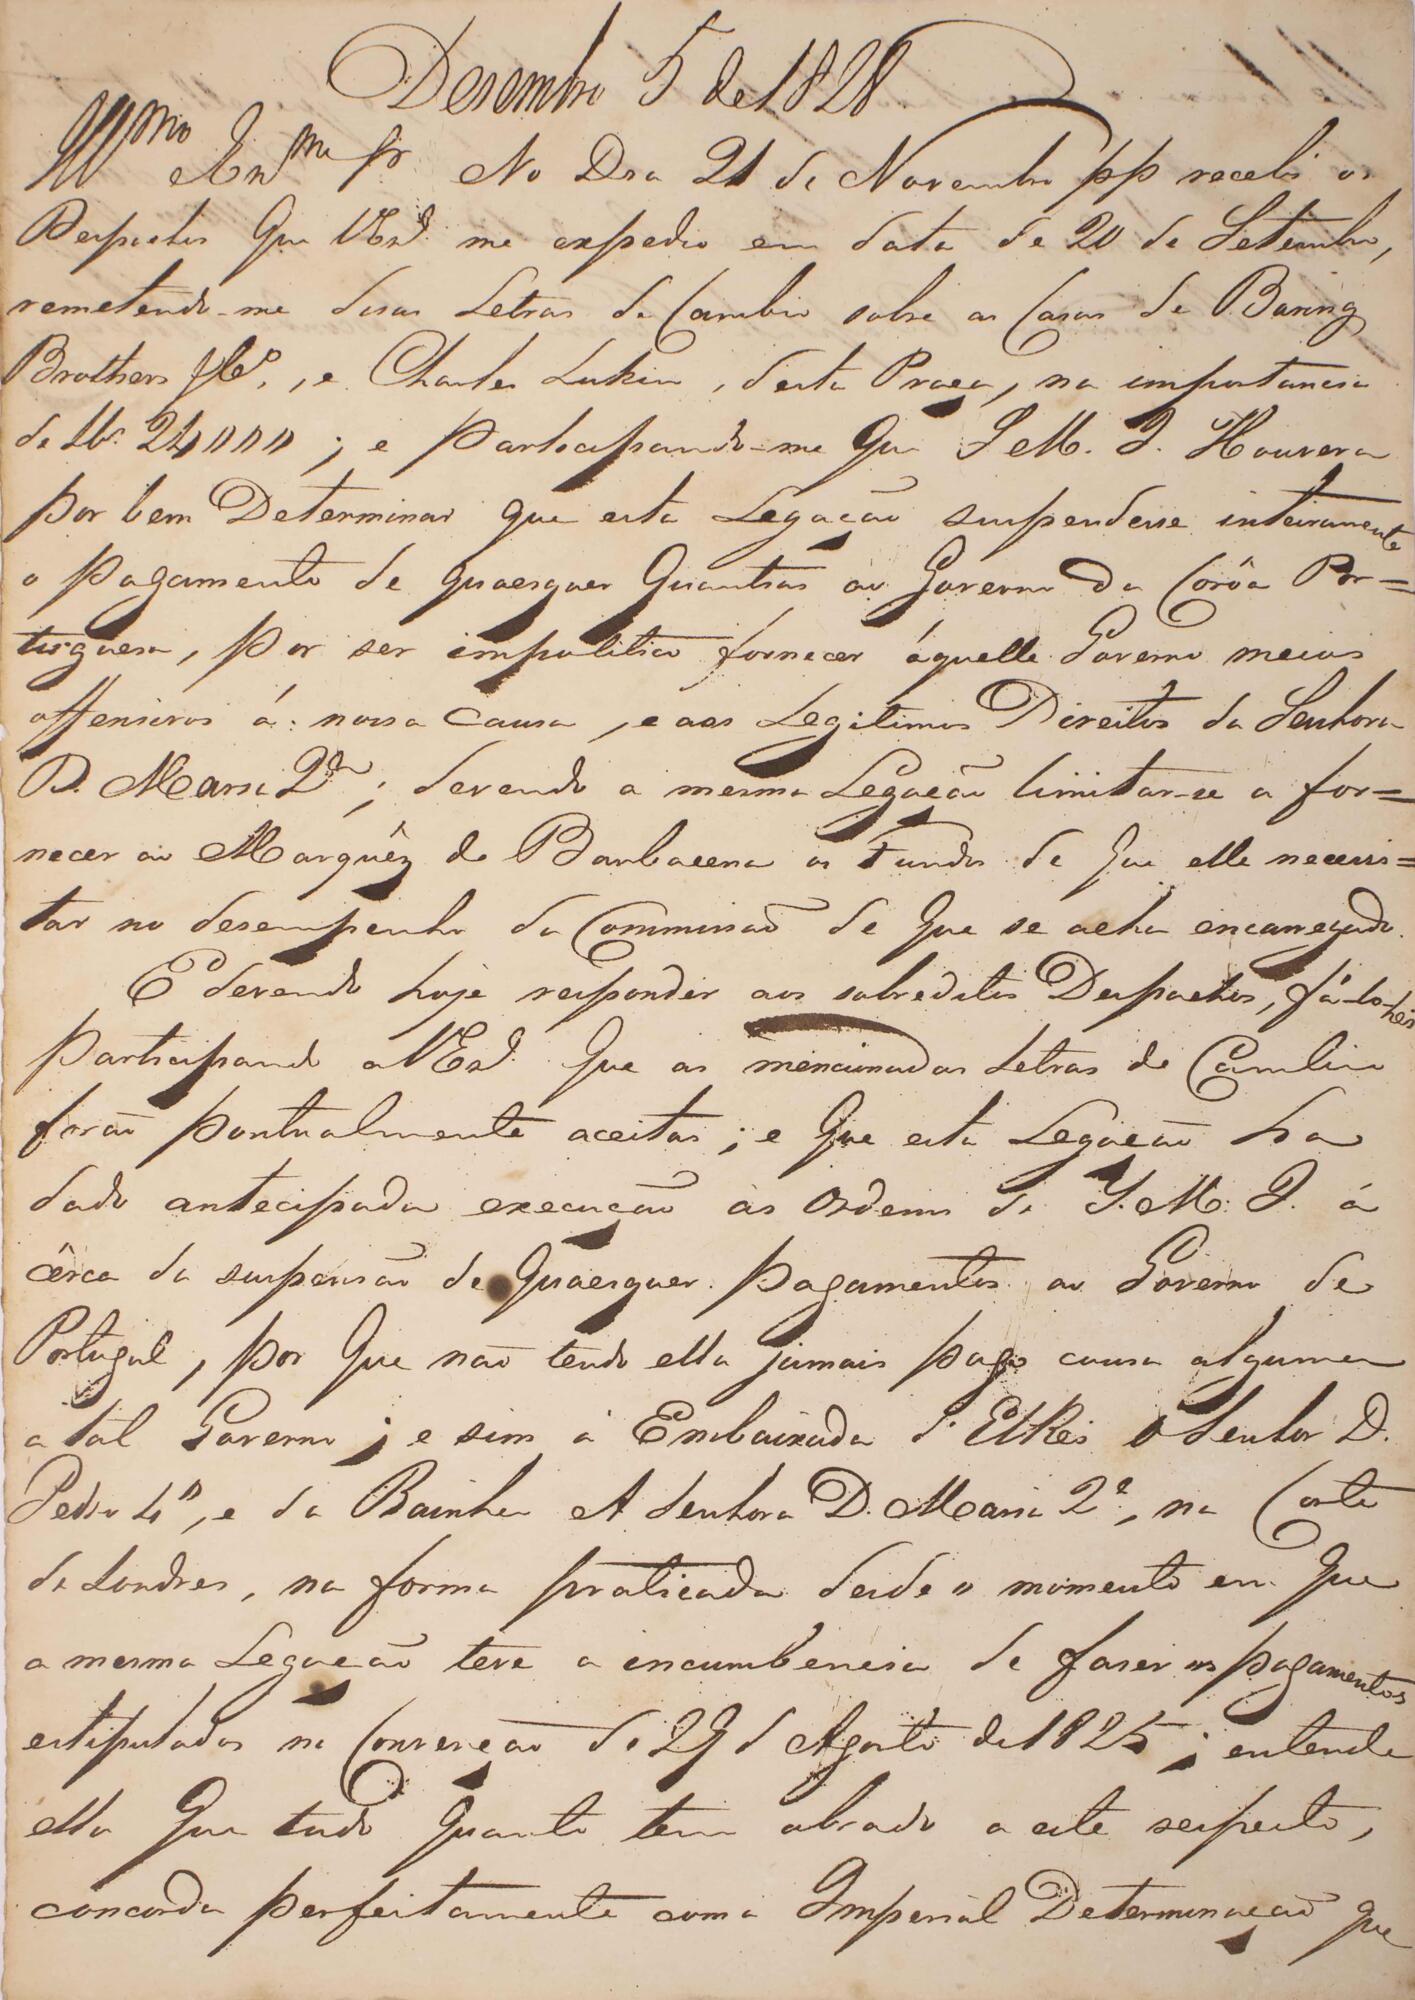 Desembro 5 de 1828.
Illmo e Exmo Sr No Dia 21 de Novembro pp recebi os
Despachos Que VExa me expedio em data de 20 de Setembro,
remetendo-me duas Letras de Cambio sobre as Casas de Baring
Brothers & Co., e Charles Lukin, desta Praça, na importancia
de Lbs 24000; e participando-me Que S M. I. Houvera
por bem Determinar que esta Legação suspendesse inteiramente
o pagamento de quaesquer Quantias ao Governo Da Corôa Por=
tuguesa, por ser impolitico fornecer áquelle Governo meios
offensivos á nossa Causa, e aos Legitimos Direitos da Senhora
D. Maria 2da; devendo a mesma Legação limitar-se a for=
necer ao Marquêz de Barbacena os Fundos de Que elle necessi=
tar no desempenho da Commissaõ de Que se acha encarregado.
E devendo hoje responder aos sobreditos Despachos, fá-lo-hei
participando a VExa. Que as mencionadas Letras de Cambio
foraõ pontualmente aceitas; e Que esta Legação ha
dado antecipada execução ás Ordens de S. M. I. á
cêrca da suspensão de Quaesquer pagamentos ao Governo de
Portugal, por Que naõ tendo ella jamais pago cousa alguma
a tal Governo; e sim á Embaixada d'ElRei o Senhor D.
Pedro 4o, e da Rainha A Senhora D. Maria 2a, na Corte
de Londres, na forma praticada desde o momento em Que
a mesma Legação teve a incumbencia de faser os pagamentos
estipulados na Convençaõ de 29 d Agosto de 1825; entende
ella Que tudo Quanto tem obrado a este respeito,
concorda perfeitamente com a Imperial Determinaçaõ que